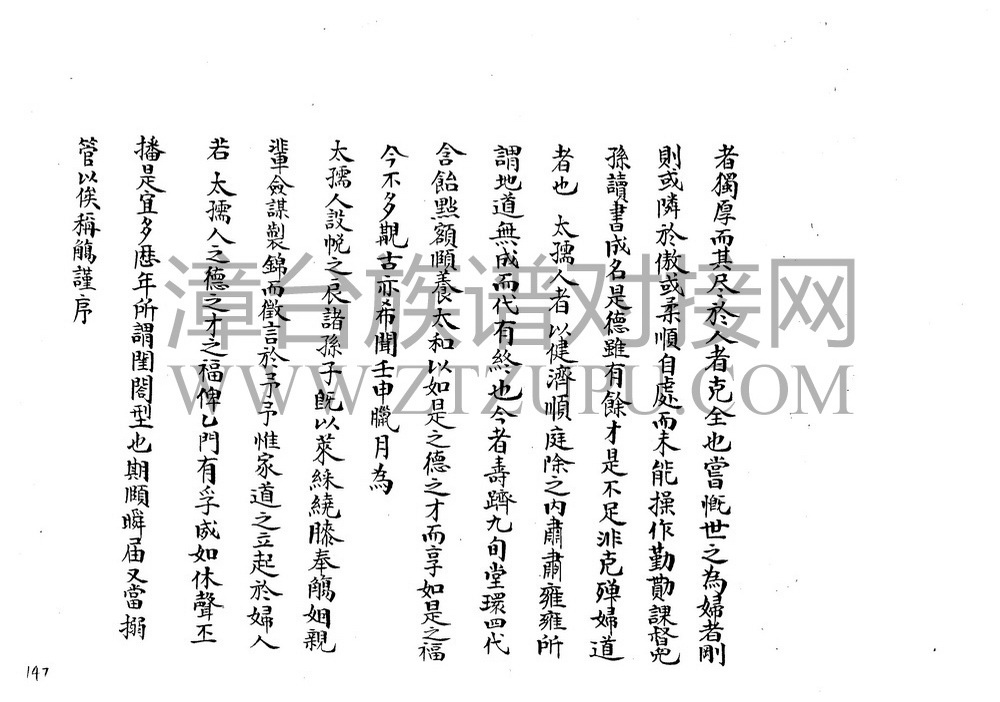 者獨厚而其尽於人者克全也嘗慨世之為婦者剛
則或隣於傲或柔順自處而未能操作勤勩課督兒
孫讀書成名是德雖有餘才是不足非克殫婦道
者也 太孺人者以健濟順庭除之内肅肅雍雍所
謂地道無成而代有終也今者壽躋九旬堂環四代
含飴點額頤養太和以如是之德之才而享如是之福
今不多覯古亦希聞壬申臘月為
太孺人設帨之辰諸孫子既以萊綵繞膝奉觴姻親
輩僉謀製錦而徵言於予予惟家道之立起於婦人
若 太孺人之德之才之福俾乙門有孚威如休聲丕
播是宜多歷年所謂閨閤型也期頤瞬届又當搦
管以俟稱觴謹序
漳台族谱对接网
WWW.ZTZUPU.COM
147